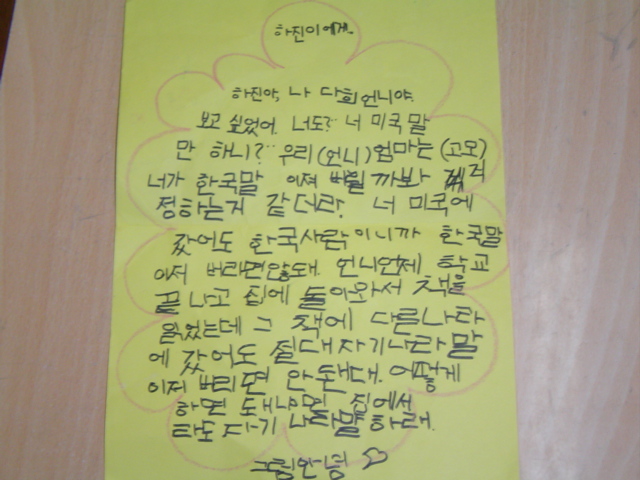 하진이에게.
하진아, 나 다희언니야.
보고 싶었어. 너도? 너 미국말
만 하니? 우리(언니)엄마는(고모)
너가 한국말 이저 버릴까봐 걱
정하는거 같더라. 너 미국에
갔어도 한국사람이니까 한국말
이저 버리면않돼. 언니언제 학교
끝나고 집에 돌아와서 책을
읽었는데 그 책에 다른나라
에 갔어도 절대자기나라말
이저버리면 안됀대. 어떻게
하면 돼냐면 집에서
라도 자기 나라말하래.
그럼안녕 ♡